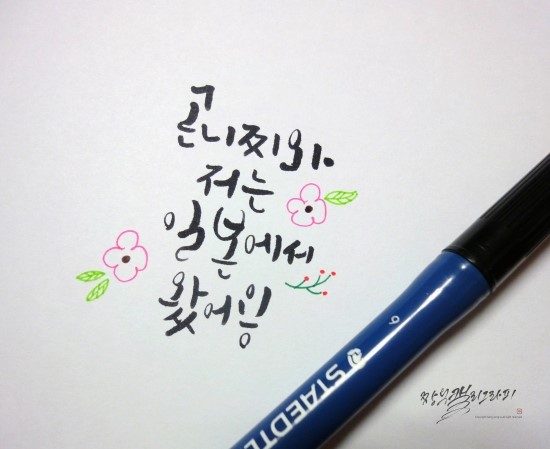 곤니찌와
저는
일본에서
왔어용
STAEDTL
6
짱우캘리그라피